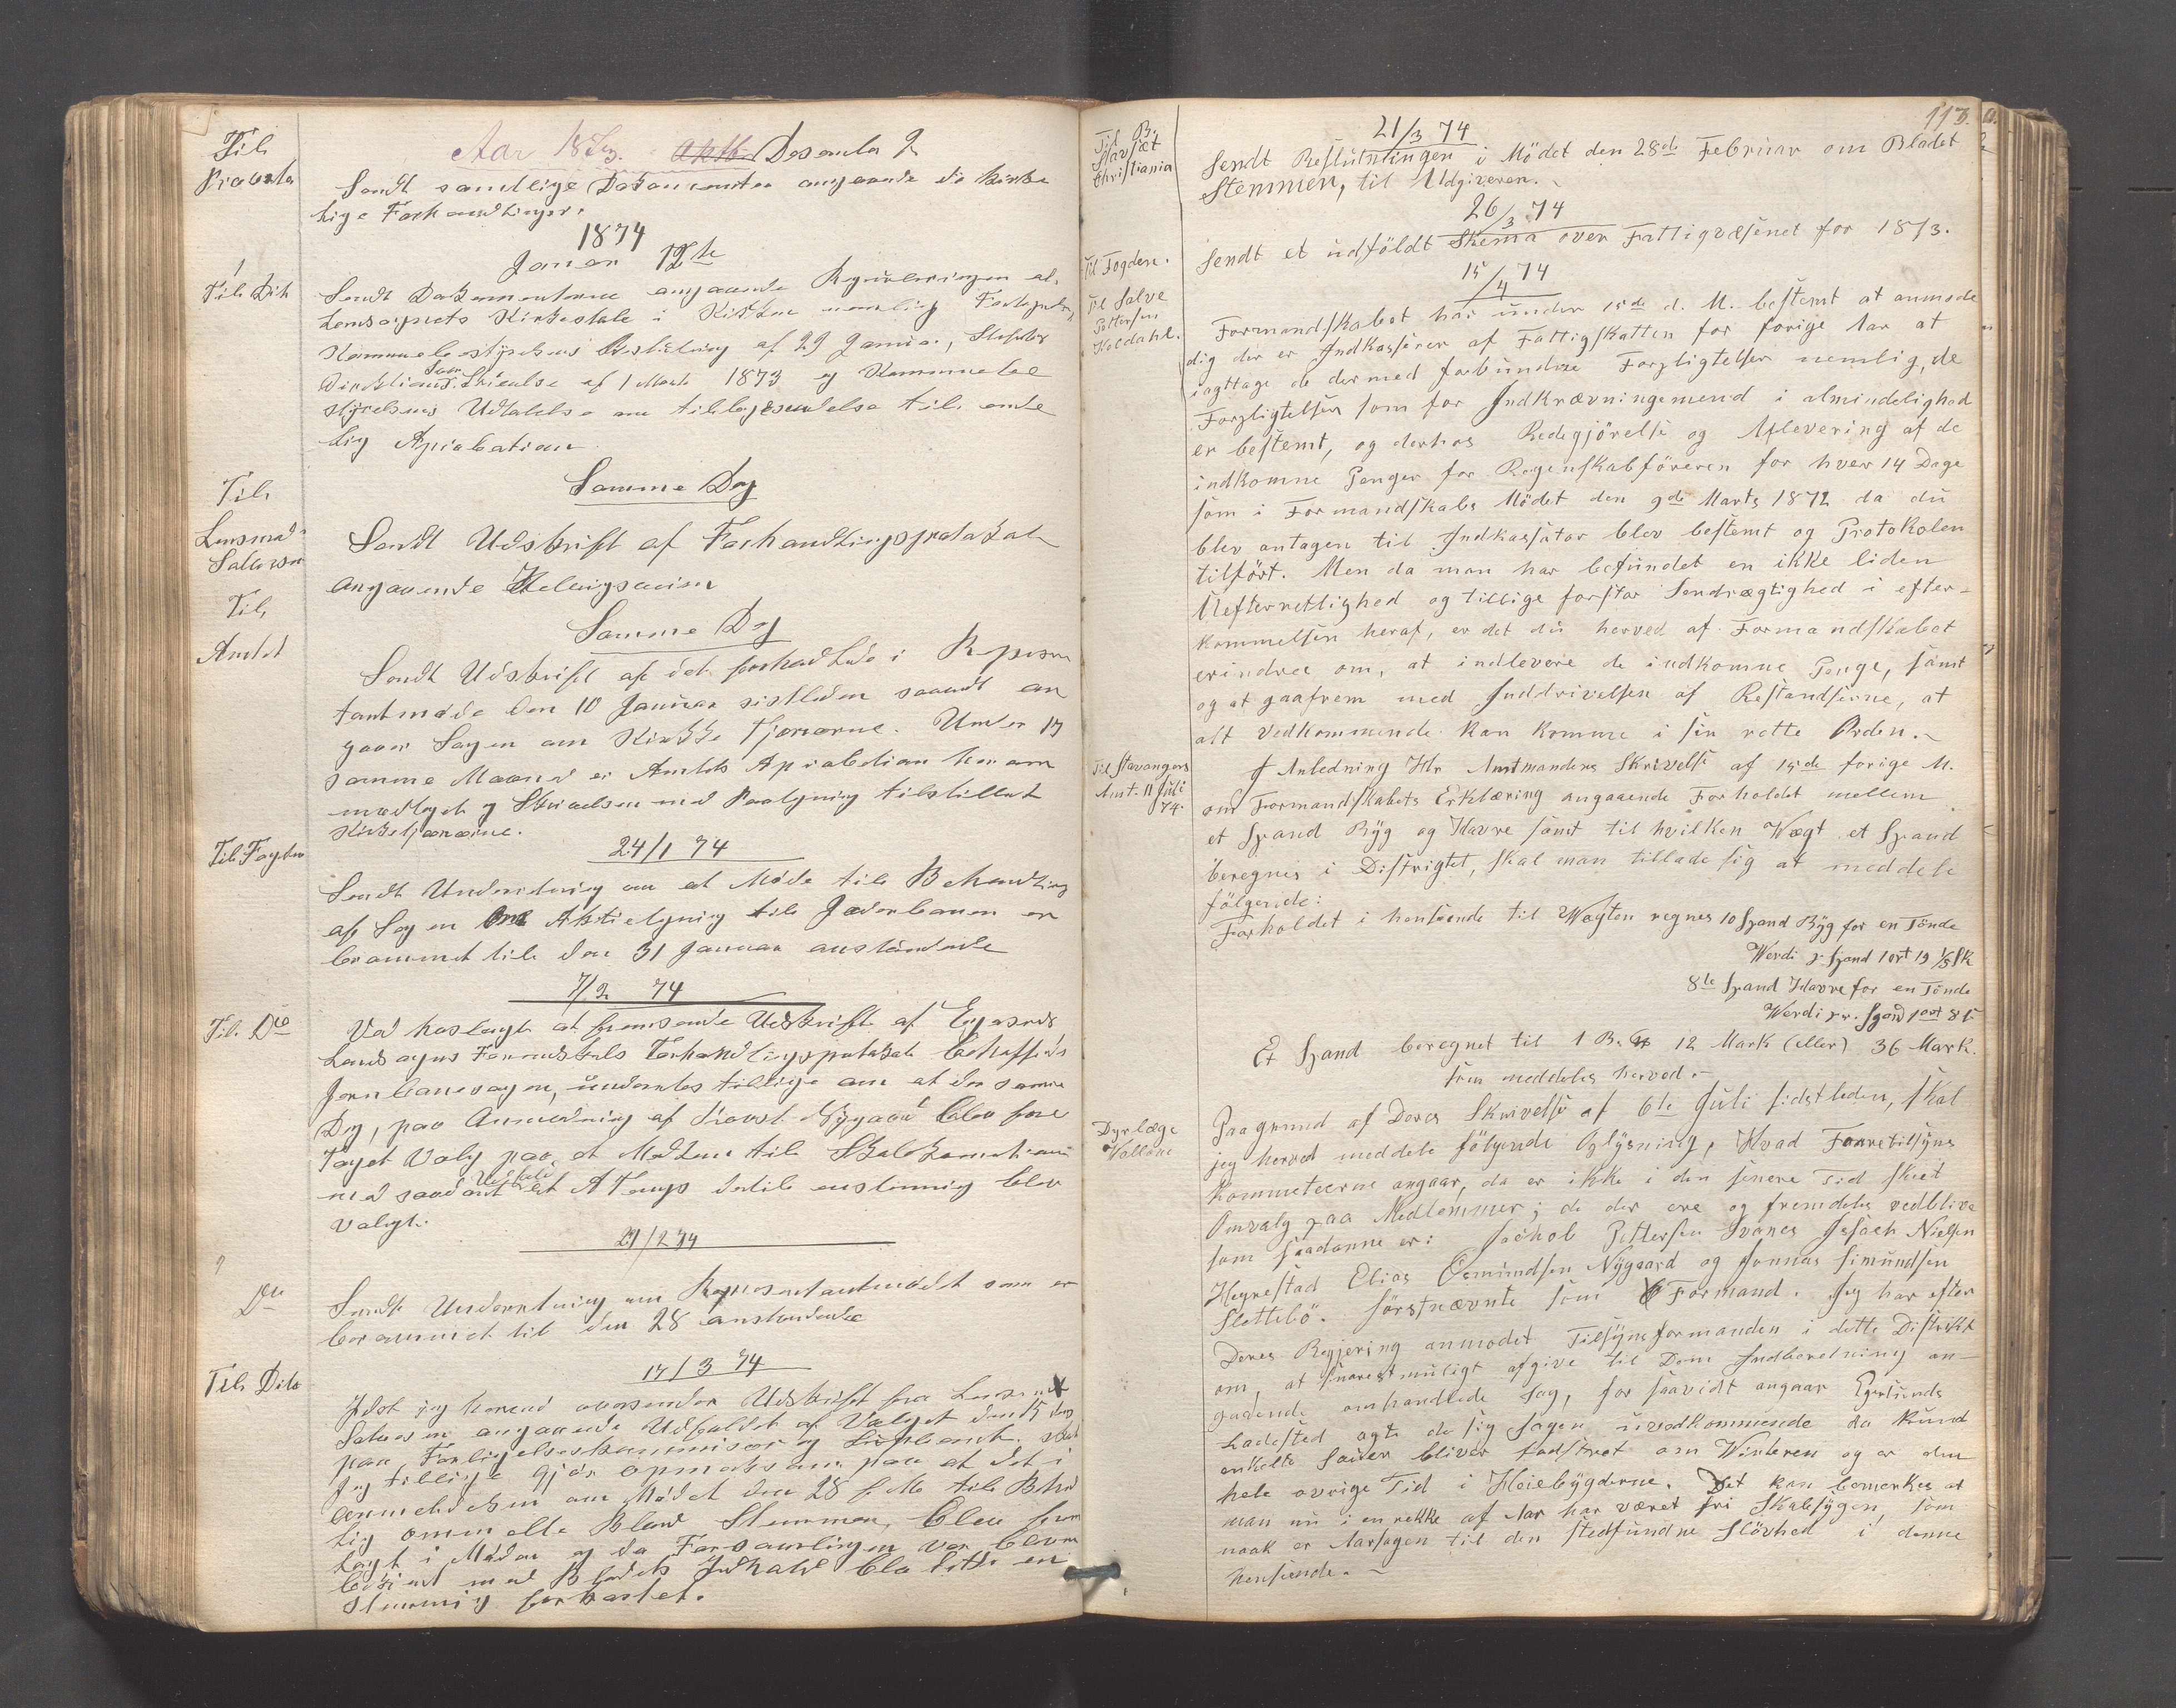 Til
Provsten
Aar 1873. Desember 2
Sendt samtlige Dokomenter angaaende de kirke
lige Forhandlinger.
1874
Januar 12te
Til Dito
Sendt Dokumenterne angaaende Reguleringen af
Kirkestole i Kirken nemlig
Kommunebestyrelsens Beslutning af 29 Januar, Stifts
Direktionens Skrivelse af 1 Marts 1873 og Kommunebe
styrelsens Udtalelse om til ende
lig Aprobation
Samme Dag
Til
Lensmand
Salvesen
Sendt Udskrift af Forhandlingsprotokol
angaaende
Samme Dag
Til
Amtet
Sendt Udskrift af det forhandlede i Repræsen
tantmøde den 10 Januar sistleden saavidt an
gaaer Sagen om Kirke Tjenerne. Under 17
samme Maaned er Amtets Aprobation herom
modtaget og Skrivelsen med Paategning tilstillet
Kirketjenerne.
24/1 74
Til Fogden
Sendt Underretning om et Møde til Behandling
af Sagen om Aktietegning til Jæderbanen er
berammet til den 31 Januar anstundende
7/2 74
Til Dto
Ved hoslagt at fremsende Udskrift af Egersunds
Landsogns Formandskabs Forhandlingsprotokol
Jernbanesagen, underrettes tillige om at den samme
Dag, paa Anmodning af Provst Nygaard blev fore
Taget Valg paa et Medlem til Skolekommissionen
med saadant Udfald at A Tengs dertil enstemmig blev
valgt.
21/2 74
Dto
Sendt Underretning om Repræsentantmødet som er
berammet til den 28 anstundende
17/3 74
Til Dito
Idet jeg herved oversender Udskrift fra Lensmand
Salvesen angaaende Udfaldet af Valget den 15 dennes
paa Forligelseskommisær og Suppleant. skal
jeg tillige gjøre opmærksom paa at det i
anmeldelsen om Mødet den 28 f. M. til Behand
ling ommeldte Blad Stemmen, blev frem
lagt i Mødet og da Forsamlingen var
bekjent med Bladets Indhold blev dette en
stemmig forkastet.
113.
Til B.
Slavsæt
Christiania
21/3 74
Sendt Beslutningen i Mödet den 28de Februar om Bladet
Stemmen, til Udgiveren.
26/3 74
Til Fogden.
Sendt et udföldt Skema over Fattigvæsenet for 1873.
15/4 74
Til Salve
Pettersen
Koldahl.
Formandskabet har under 15de d. M. bestemt at anmode
dig der er Indkasserer af Fattigskatten for forige Aar at
iagttage de dermed forbundne Forpligtelser nemlig, de
Forpligtelser som for Indkrævningsmend i almindelighed
er bestemt, og derhos Redegjörelse og Aflevering af de
indkomne Penger for Regenskabföreren for hver 14 Dage
som i Formandskabs Mödet den 9de Marts 1872 da du
blev antagen til Indkassator blev bestemt og Protokolen
tilfört. Men da man har befundet en ikke liden
Uefterrettlighed og tillige forstor Sendrægtighed i efter-
kommelsen heraf, er det du herved af Formandskabet
erindres om, at indlevere de indkomne Penge, samt
og at gaafrem med Inddrivelsen af Restandserne, at
alt vedkommende kan komme i sin rette Orden.
Til Stavangers
Amt. 11 Juli
74.
I Anledning Hr Amtmandens Skrivelse af 15de forige M.
om Formandskabets Erklæring angaaende Forholdet mellem
et Spand Byg og Havre samt til hvilken Wægt et Spand
beregnes i Distrigtet, skal man tillade sig at meddele
fölgende:
Forholdet i henseende til Wægten regnes 10 Spand Byg for en Tönde
Werdi pr Spand 1 ort 19 1/5 sk
8te Spand Havre for en Tönde
Werdi pr. Spand 1 ort 8 s
Et Spand beregnet til 1 B. 12 Mark (eller) 36 Mark.
som meddeles herved.
Dyrlæge
Paagrund af Deres Skrivelse af 6te Juli sidstleden, skal
jeg herved meddele fölgende Oplysning, Hvad Faaretilsyns
Kommeteerne angaar, da er ikke i den senere Tid skeet
Omvalg paa Medlemmer; de der ere og fremdeles vedblive
som saadanne er: Jackob Pettersen Svanes Issach Nielsen
Hegrestad Elias Osmundsen Nygaard og Jonnas Simundsen
Slettebö. förstnævnte som Formand. Jeg har efter
Deres Begjering anmodet Tilsynsformanden i dette Distrikt
om, at snarestmuligt afgive til Dem Indberetning an-
gaaende omhandlede Sag, for saavidt angaar Egersunds
Ladested agte de sig Sagen uvedkommende da kund
enkelte Souer bliver fodstret om Winteren og er den
hele övrige Tid i Heiebygderne. Det kan bemerkes at
man nu i en rekke af Aar har været fri Skabsygen, som
naak er Aarsagen til den stedfundne Slövhed i denne
henseende.